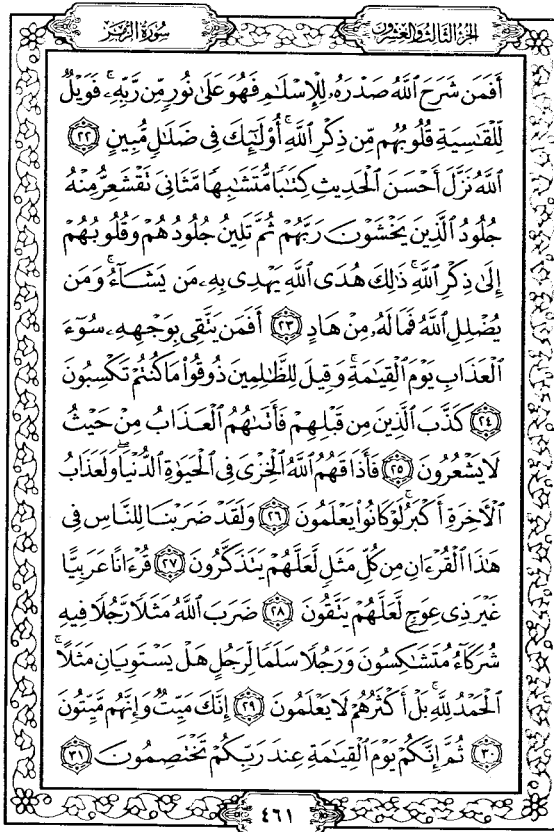 سُورَةُ الزُّمَرِ
الجُزْءُ الثَّالِثُ وَالْعِشْرُونَ
أَفَمَن شَرَحَ ٱللَّهُ صَدْرَهُۥ لِلْإِسْلَٰمِ فَهُوَ عَلَىٰ نُورٍ مِّن رَّبِّهِۦۚ فَوَيْلٌ
لِّلْقَٰسِيَةِ قُلُوبُهُم مِّن ذِكْرِ ٱللَّهِۚ أُوْلَٰٓئِكَ فِى ضَلَٰلٍ مُّبِينٍ ۝٢٢
ٱللَّهُ نَزَّلَ أَحْسَنَ ٱلْحَدِيثِ كِتَٰبًا مُّتَشَٰبِهًا مَّثَانِىَ تَقْشَعِرُّ مِنْهُ
جُلُودُ ٱلَّذِينَ يَخْشَوْنَ رَبَّهُمْ ثُمَّ تَلِينُ جُلُودُهُمْ وَقُلُوبُهُمْ
إِلَىٰ ذِكْرِ ٱللَّهِۚ ذَٰلِكَ هُدَى ٱللَّهِ يَهْدِى بِهِۦ مَن يَشَآءُۚ وَمَن
يُضْلِلِ ٱللَّهُ فَمَا لَهُۥ مِنْ هَادٍ ۝٢٣ أَفَمَن يَتَّقِى بِوَجْهِهِۦ سُوٓءَ
ٱلْعَذَابِ يَوْمَ ٱلْقِيَٰمَةِۚ وَقِيلَ لِلظَّٰلِمِينَ ذُوقُوا۟ مَا كُنتُمْ تَكْسِبُونَ
۝٢٤ كَذَّبَ ٱلَّذِينَ مِن قَبْلِهِمْ فَأَتَىٰهُمُ ٱلْعَذَابُ مِنْ حَيْثُ
لَا يَشْعُرُونَ ۝٢٥ فَأَذَاقَهُمُ ٱللَّهُ ٱلْخِزْىَ فِى ٱلْحَيَوٰةِ ٱلدُّنْيَاۖ وَلَعَذَابُ
ٱلْءَاخِرَةِ أَكْبَرُۚ لَوْ كَانُوا۟ يَعْلَمُونَ ۝٢٦ وَلَقَدْ ضَرَبْنَا لِلنَّاسِ فِى
هَٰذَا ٱلْقُرْءَانِ مِن كُلِّ مَثَلٍ لَّعَلَّهُمْ يَتَذَكَّرُونَ ۝٢٧ قُرْءَانًا عَرَبِيًّا
غَيْرَ ذِى عِوَجٍ لَّعَلَّهُمْ يَتَّقُونَ ۝٢٨ ضَرَبَ ٱللَّهُ مَثَلًا رَّجُلًا فِيهِ
شُرَكَآءُ مُتَشَٰكِسُونَ وَرَجُلًا سَلَمًا لِّرَجُلٍ هَلْ يَسْتَوِيَانِ مَثَلًاۚ
ٱلْحَمْدُ لِلَّهِۚ بَلْ أَكْثَرُهُمْ لَا يَعْلَمُونَ ۝٢٩ إِنَّكَ مَيِّتٌ وَإِنَّهُم مَّيِّتُونَ
۝٣٠ ثُمَّ إِنَّكُمْ يَوْمَ ٱلْقِيَٰمَةِ عِندَ رَبِّكُمْ تَخْتَصِمُونَ ۝٣١
٤٦١